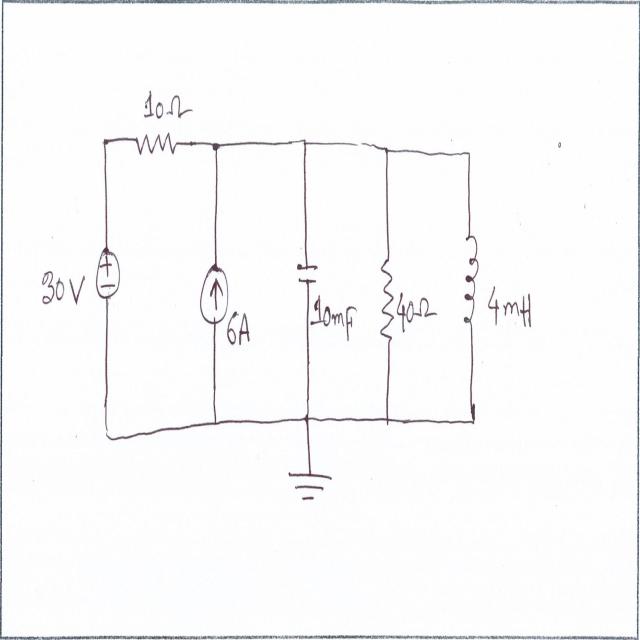 10Ω
30V
6A
10mF
40Ω
4mH